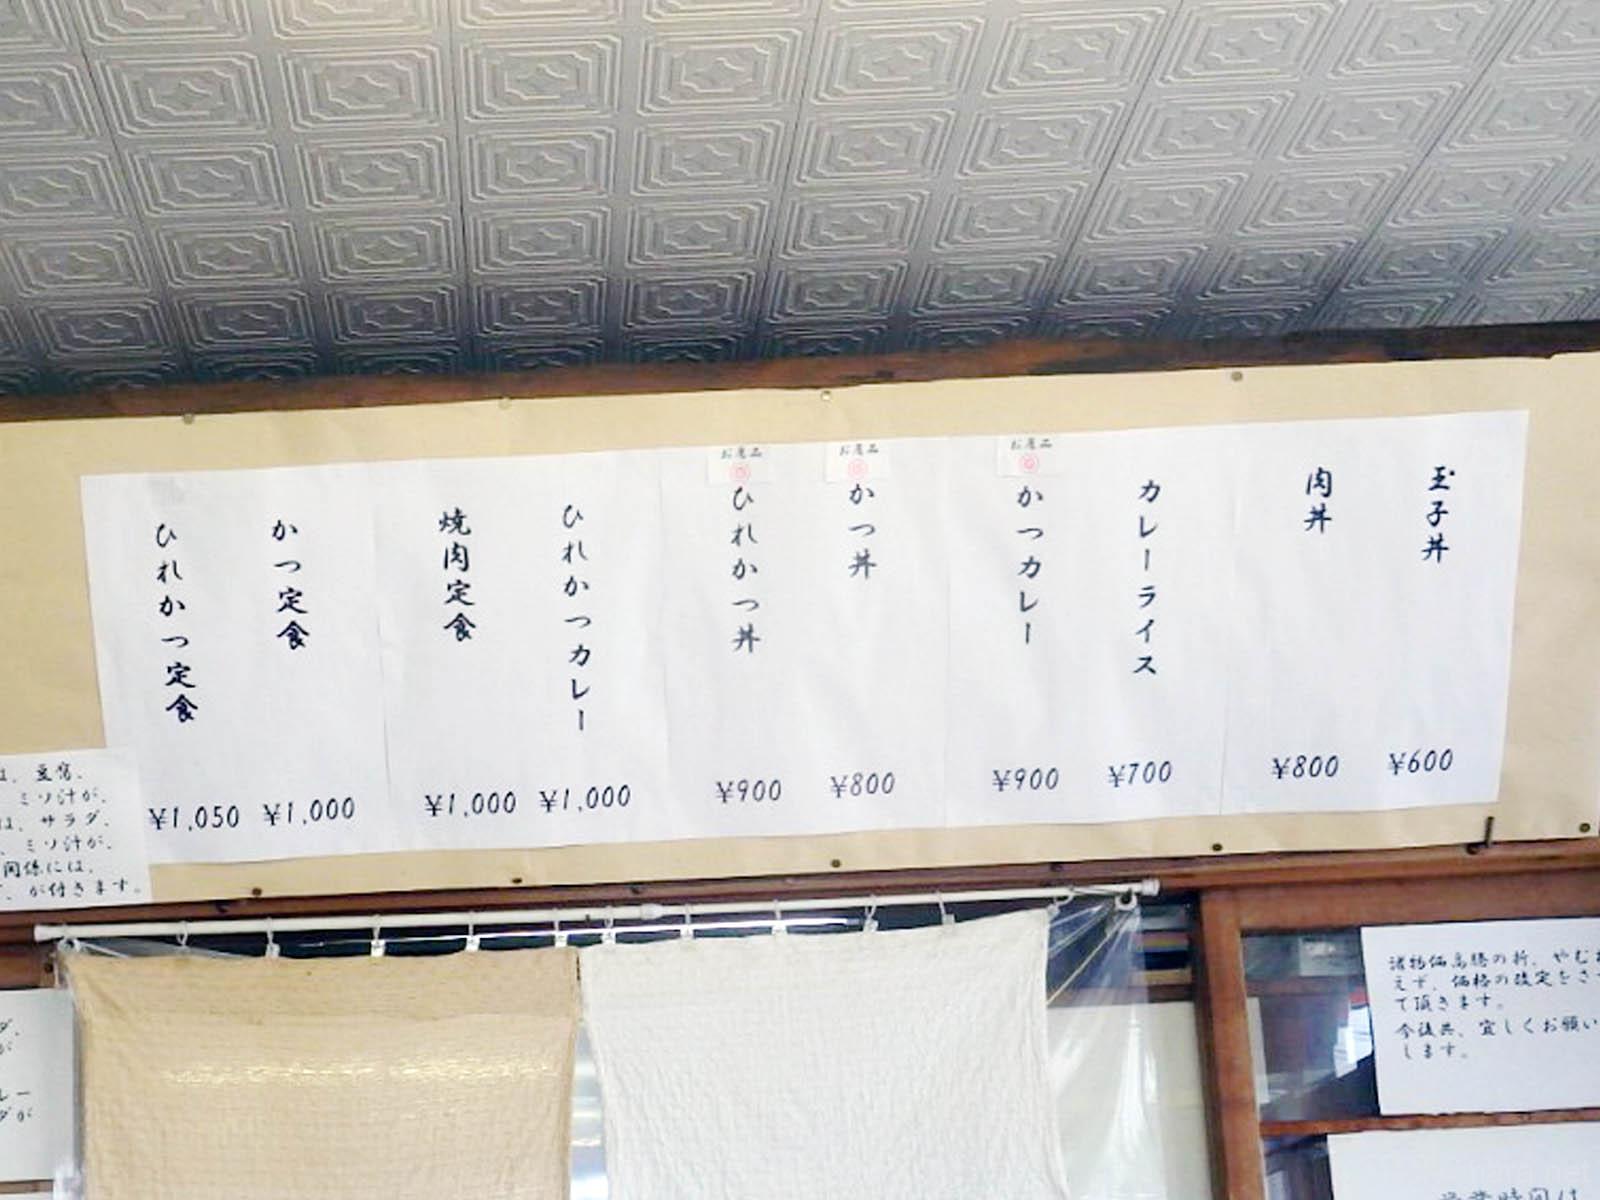 玉子丼
¥600
肉丼
¥800
カレーライス
¥700
かつカレー
¥900
かつ丼
¥800
ひれかつ丼
¥900
ひれかつカレー
¥1,000
焼肉定食
¥1,000
かつ定食
¥1,000
ひれかつ定食
¥1,050
は、豆腐、
ミソ汁が、
は、サラダ、
、ミソ汁が、
関係には、
、が付きます。
諸物価高騰の折、やむ
えず、価格の改定をさ
て頂きます。
今後共、宜しくお願い
します。
ダ、
が
レー
ダが
営業時間は